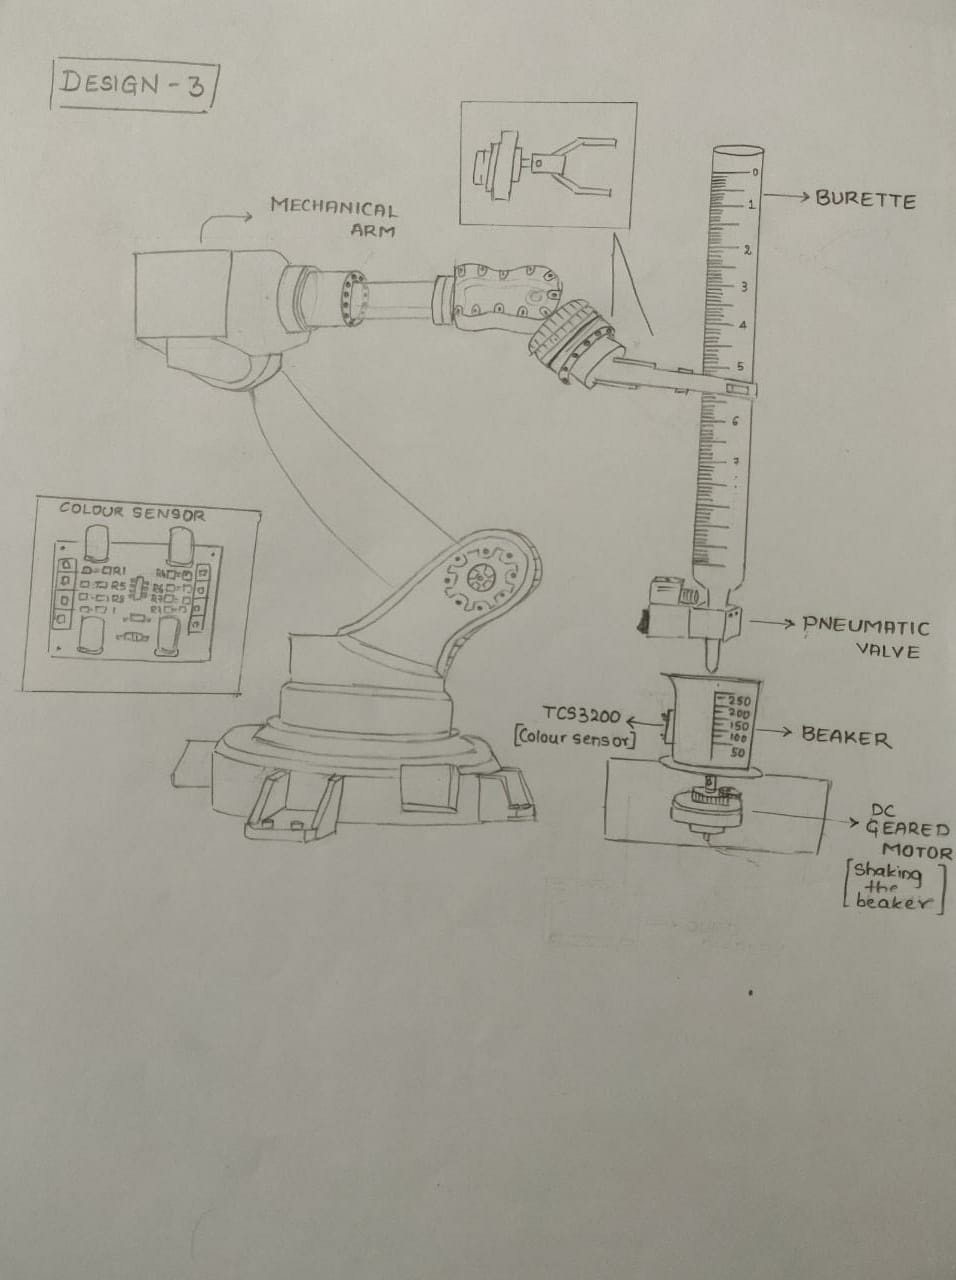 DESIGN - 3
MECHANICAL
ARM
BURETTE
0
1
2
3
4
5
6
7
COLOUR SENSOR
R1
R5
R6
R7
PNEUMATIC
VALVE
TCS3200
[Colour sensor]
250
200
150
100
50
BEAKER
DC
GEARED
MOTOR
[Shaking
the
beaker]